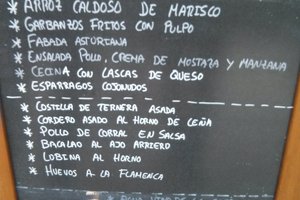 * ARROZ CALDOSO DE MARISCO
* GARBANZOS FRITOS CON PULPO
* FABADA ASTURIANA
* ENSALADA POLLO, CREMA DE MOSTAZA Y MANZANA
* CECINA CON LASCAS DE QUESO
* ESPARRAGOS COJONUDOS
* COSTILLA DE TERNERA ASADA
* CORDERO ASADO AL HORNO DE LEÑA
* POLLO DE CORRAL EN SALSA
* BACALAO AL AJO ARRIERO
* LUBINA AL HORNO
* HUEVOS A LA FLAMENCA